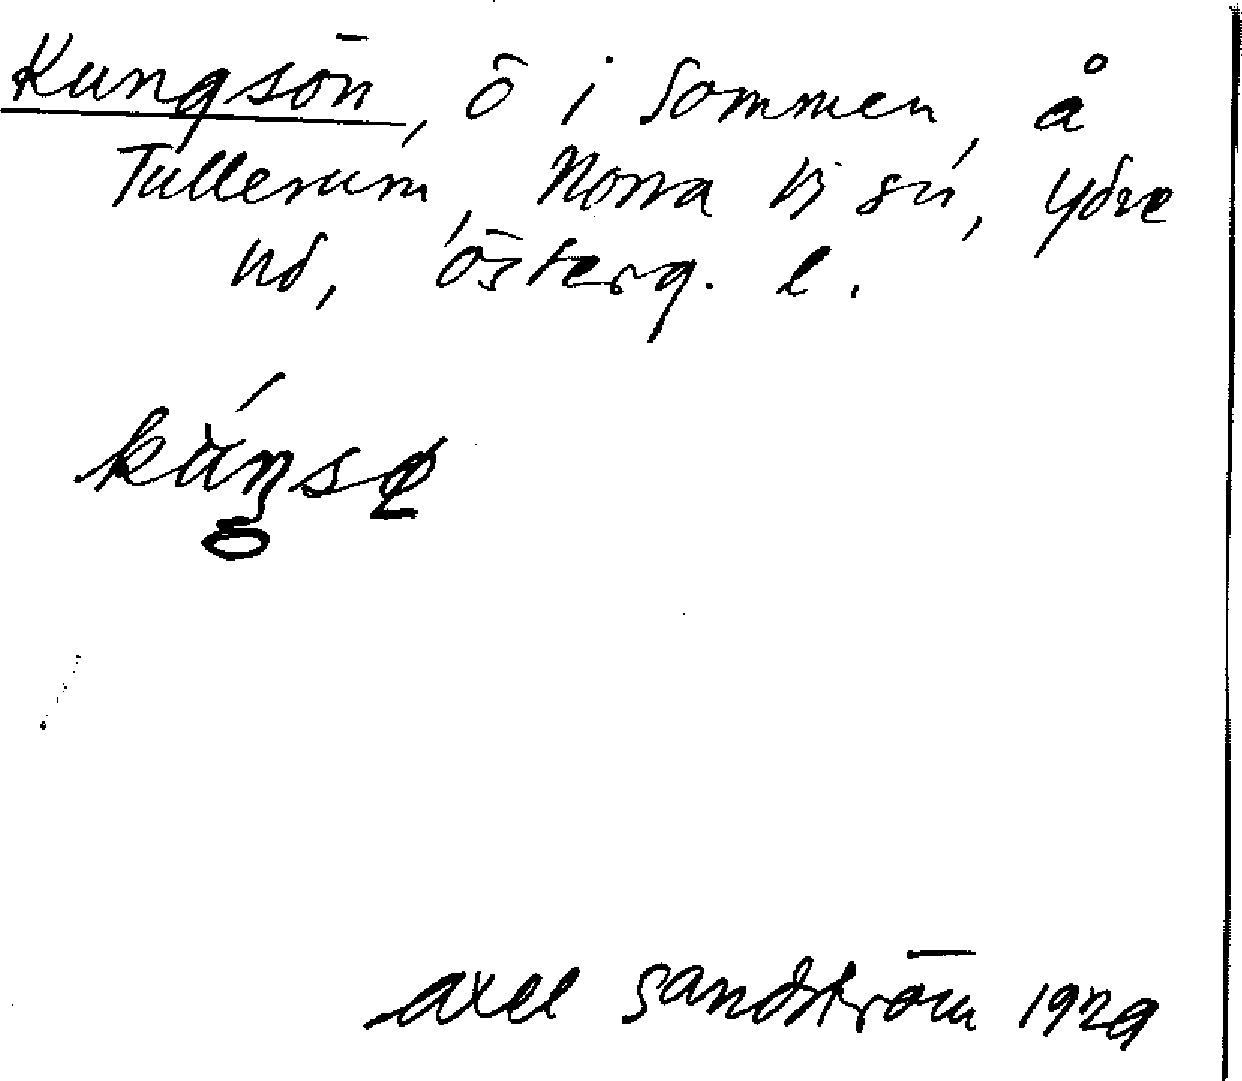 Kungsön, ö i Sommen, å
Tullerum, Norra Vi sn, Ydre
hd, Österg. l.
Axel Sandström 1929